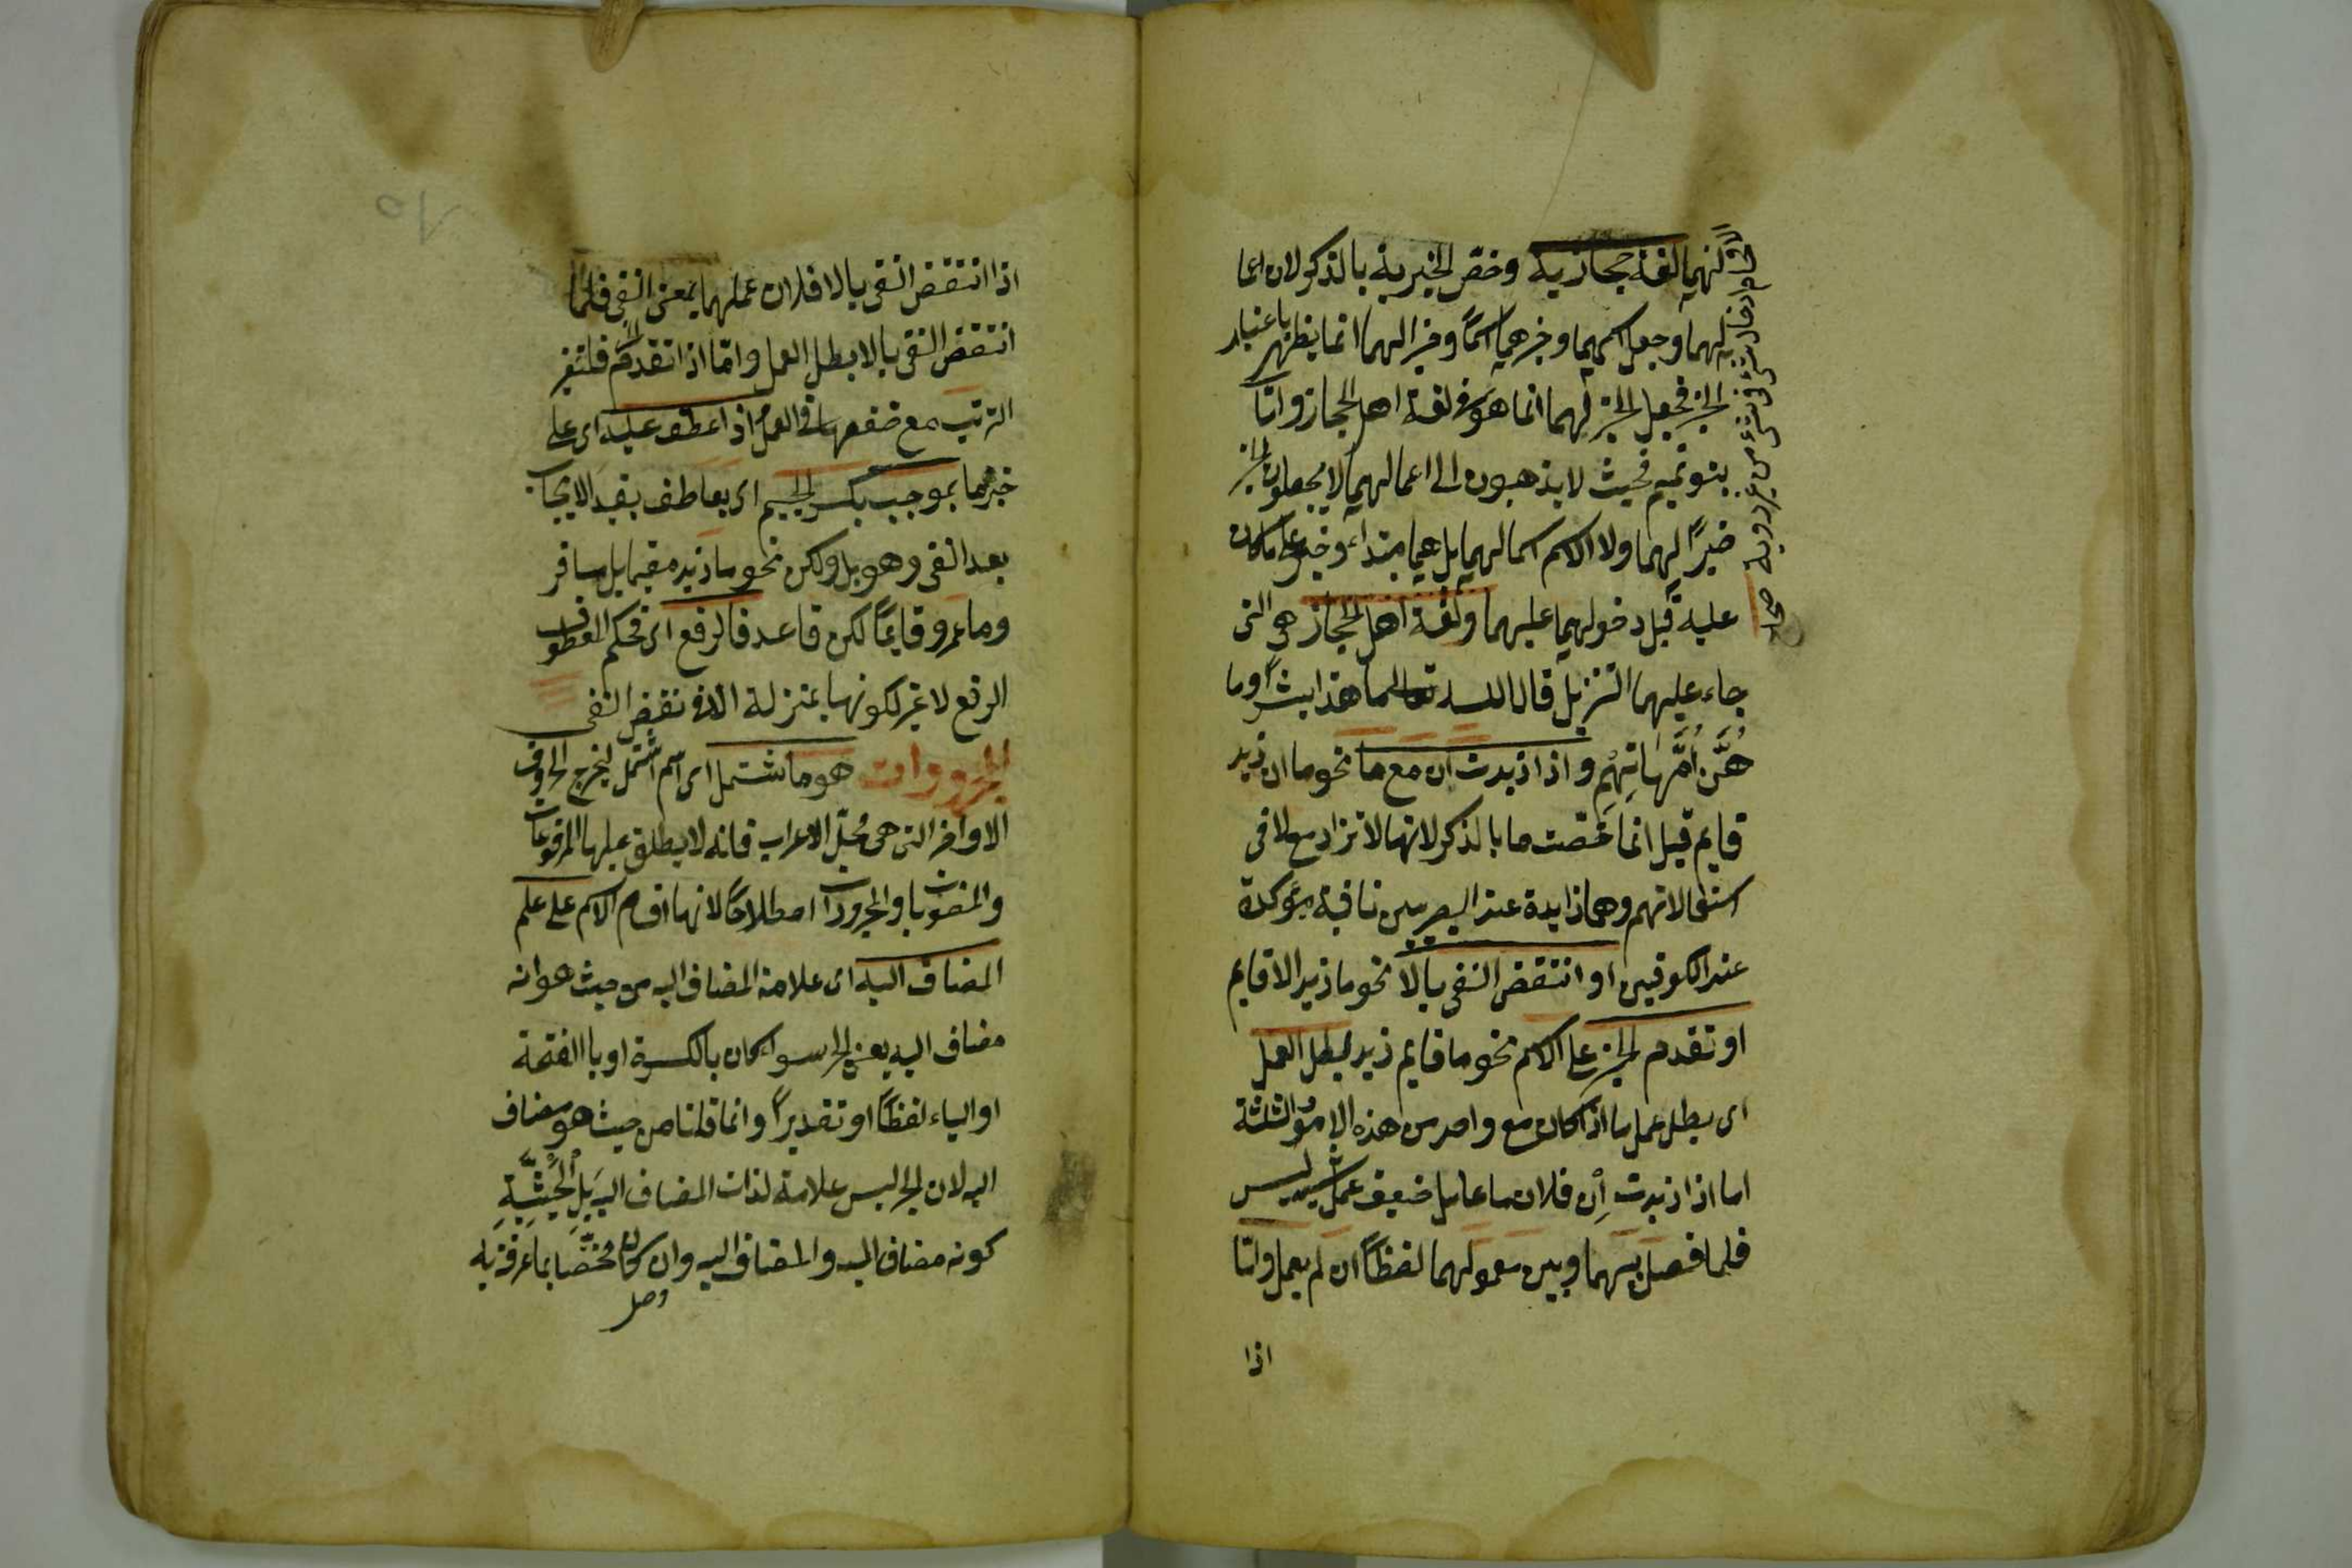 لهما لغة حجازية وخص الخبرية بالذكر لان اعما
لهما وجعل اسمهما وخبرهما اسمًا وخبرا لهما انما يظهر باعتبار
الخبر فجعل الخبر لهما انما هو في لغة اهل الحجاز واما
بنو تميم فحيث لا يذهبون الى اعمالهما لا يجعلون الخبر
خبرًا لهما ولا الاسم اسما لهما بل هما مبتداء وخبر على ما كان
عليه قبل دخولهما عليهما ولغة اهل الحجاز هي التى
جاء عليهما التنزيل قال الله تعالى ما هذا بشرًا وما
هُنَّ اُمَّهَاتِهُمِ واذا زيدت ان مع ما نحو ما ان زيد
قايم قيل انما خصت ما بالذكر لانها لا تزاد مع لا فى
استعمالاتهم وهى زايدة عند البصريين نافية مؤكدة
عند الكوفيين او انتقض النفى بالا نحو ما زيد الا قايم
او تقدم الخبر على الاسم نحو ما قايم زيد بطل العمل
اى بطل عمل ما اذا كان مع واحد من هذه الامور الثلثة
اما اذا زيدت اِنْ فلان ما عامل ضعيف عمل لشبه ليس
فلما فصل بينهما وبين معمولهما لفظًا ان لم يعمل واما
اذا
اذا انتقض النفى بالا فلان عملهما بمعنى النفى فلما
انتقض النفى بالا بطل العمل واما اذا تقدم الخبر فلتغير
الترتيب مع ضعفها فى العمل اذا عطف عليه اى على
خبرهما بموجب بكسر الجيم اى بعاطف يفيد الايجاب
بعد النفى وهو بل ولكن نحو ما زيد مقيما بل مسافر
وما عمرو قايمًا لكن قاعد فالرفع اى فحكم المعطوف
الرفع لا غير لكونهما بمنزلة الا فى نقض النفى
المجرورات هو ما اشتمل اى اسم اشتمل ليخرج الحروف
الاواخر التى هى محل الاعراب فانه لا يطلق عليها المرفوعات
والمنصوبات والمجرورات اصطلاحًا لانها اقسام الاسم على علم
المضاف اليه اى علامة المضاف اليه من حيث هو انه
مضاف اليه يعنى الجر سواء كان بالكسرة او بالفتحة
او الياء لفظًا او تقديرًا وانما قلنا من حيث هو مضاف
اليه لان الجر ليس علامة لذات المضاف اليه بل لحيثية
كونه مضاف اليه والمضاف اليه وان كان مختصا بما عرفته